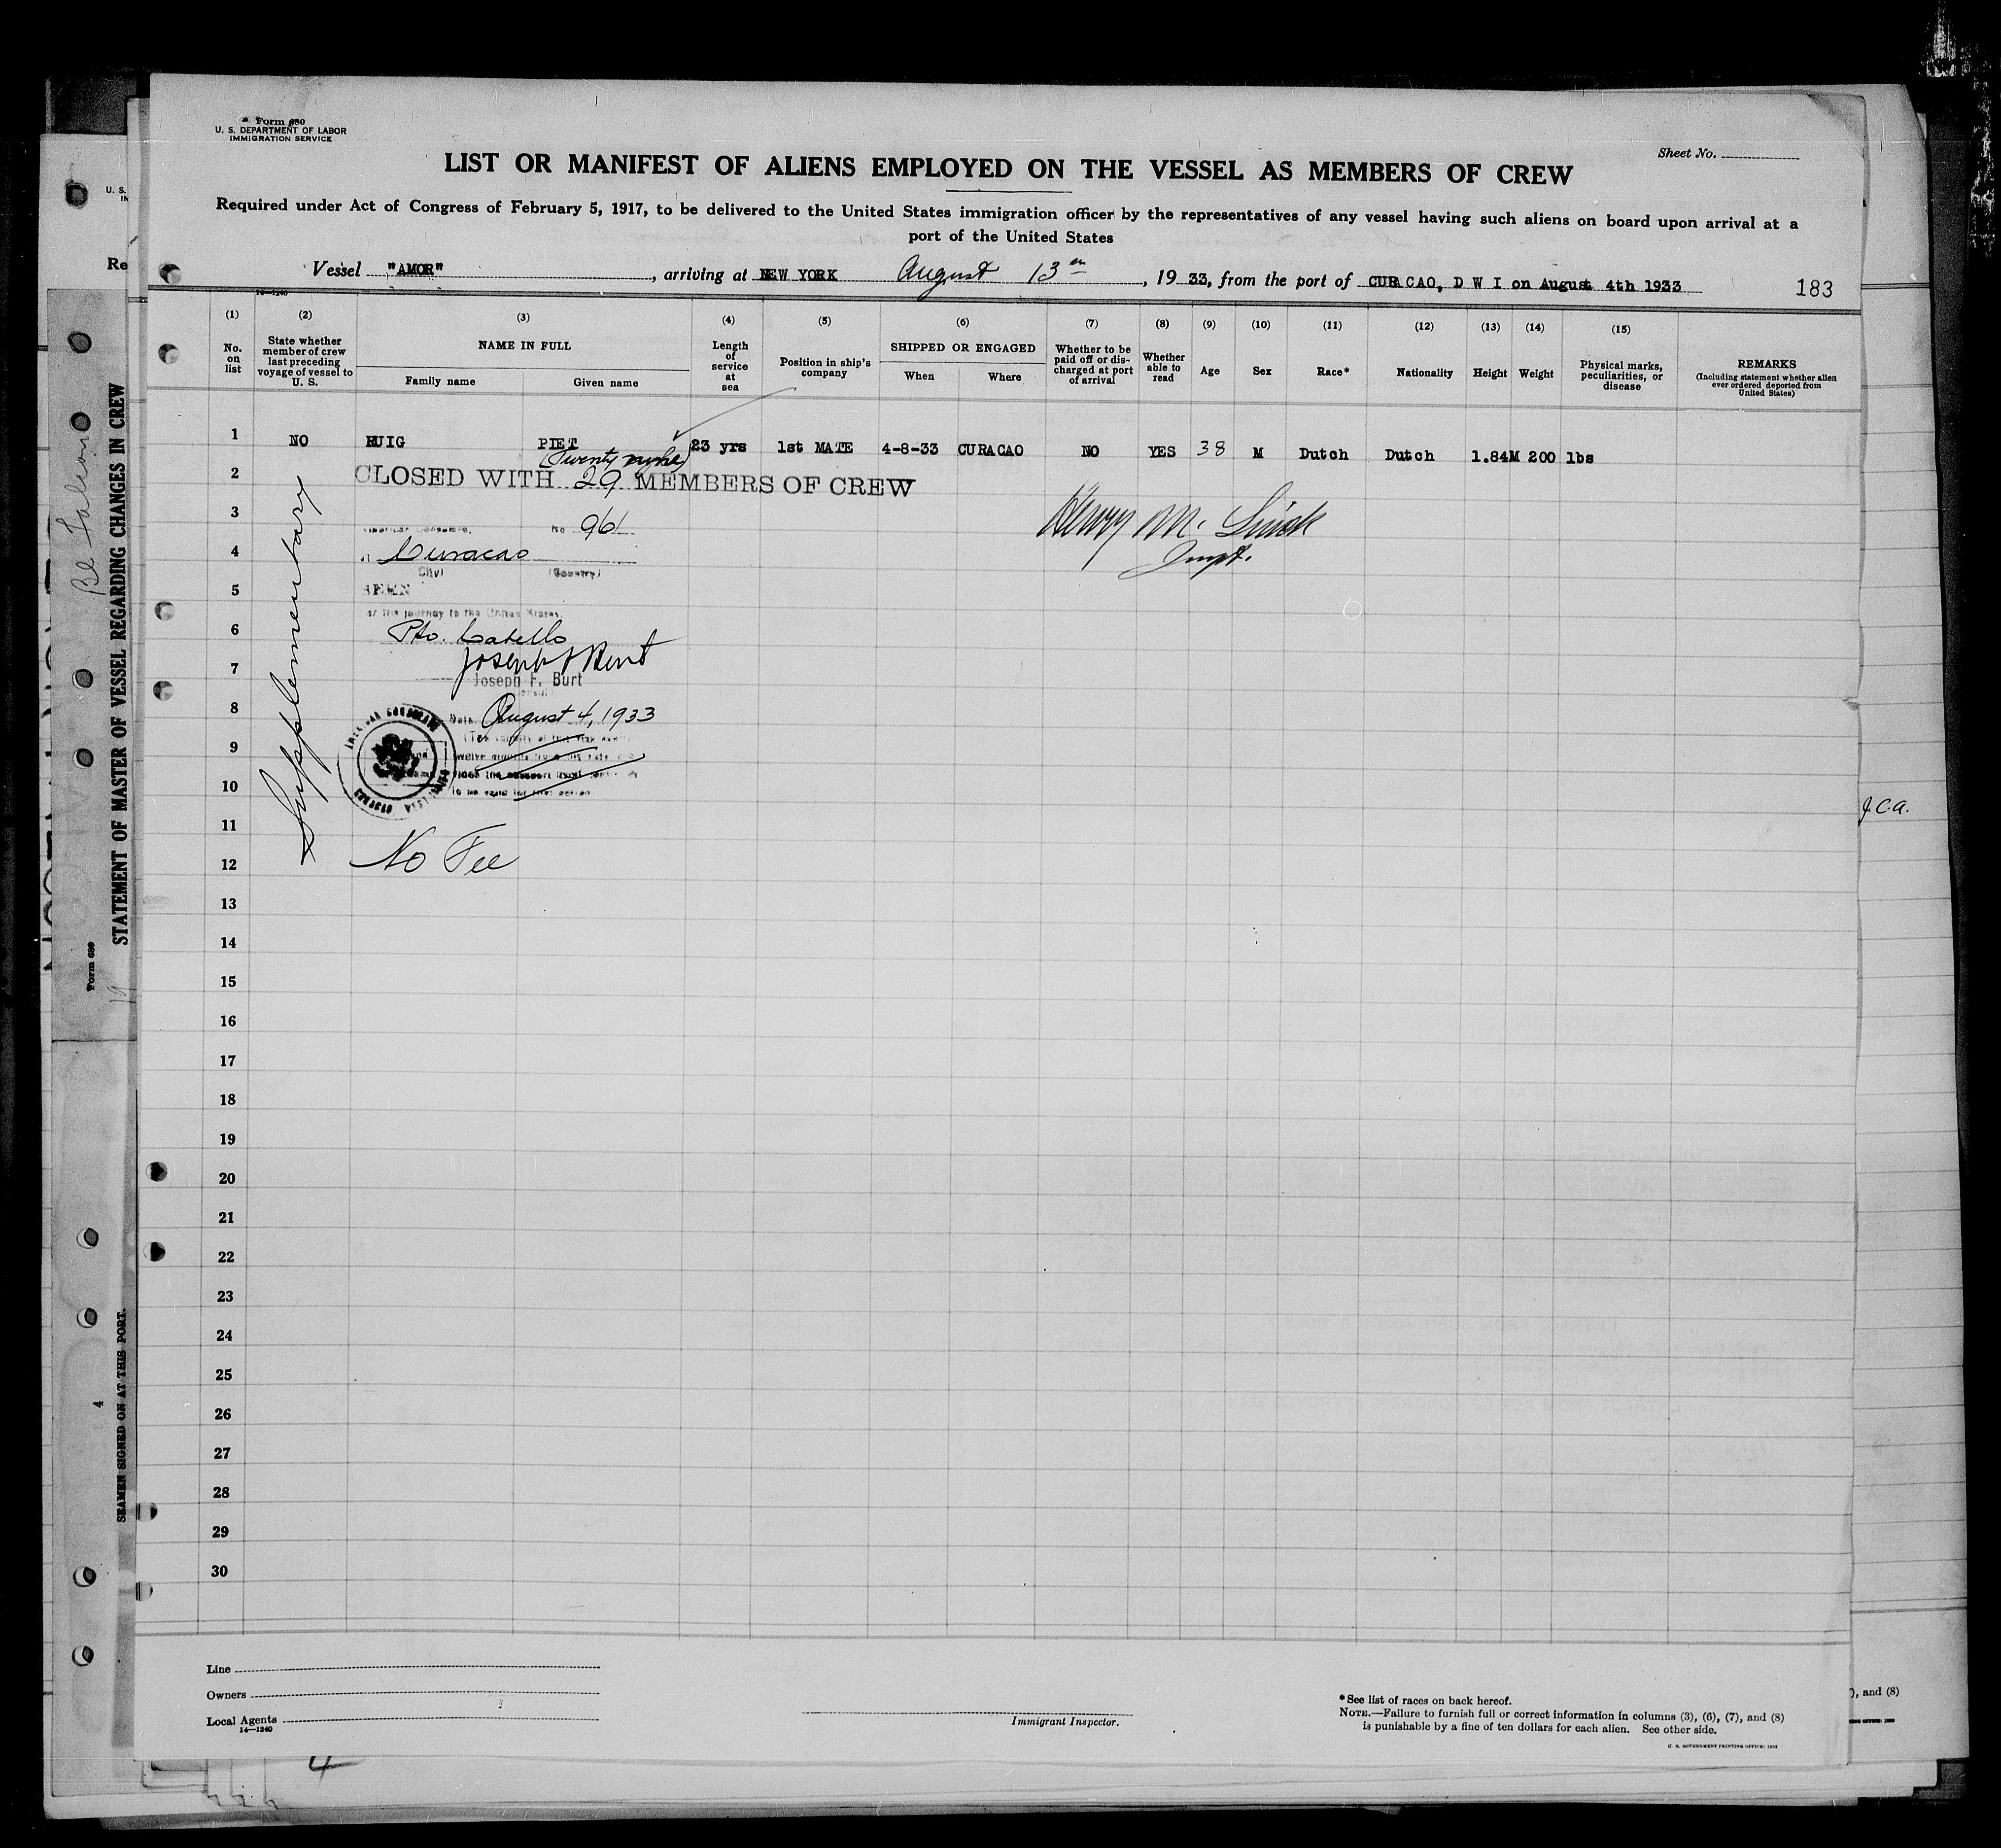 Form 680
U. S. DEPARTMENT OF LABOR
IMMIGRATION SERVICE
Sheet No.
LIST OR MANIFEST OF ALIENS EMPLOYED ON THE VESSEL AS MEMBERS OF CREW
Required under Act of Congress of February 5, 1917, to be delivered to the United States immigration officer by the representatives of any vessel having such aliens on board upon arrival at a
port of the United States
Vessel "AMOR", arriving at NEW YORK August 13th, 1933, from the port of CURACAO, D W I on August 4th 1933
183
14—1240
(1) (2) (3) (4) (5) (6) (7) (8) (9) (10) (11) (12) (13) (14) (15)
No. on list
State whether member of crew last preceding voyage of vessel to U. S.
NAME IN FULL
Family name
Given name
Length of service at sea
Position in ship's company
SHIPPED OR ENGAGED
When
Where
Whether to be paid off or discharged at port of arrival
Whether able to read
Age
Sex
Race*
Nationality
Height
Weight
Physical marks, peculiarities, or disease
REMARKS
(Including statement whether alien ever ordered deported from United States)
1 NO HUIG PIET 23 yrs 1st MATE 4-8-33 CURACAO NO YES 38 M Dutch Dutch 1.84M 200 lbs
(Twenty nine)
2 CLOSED WITH 29 MEMBERS OF CREW
3 No 961
Henry M.
4 Curacao
Inspt.
(City) (Country)
5 SEEN
for the journey to the United States,
6 Pto. Cabello
7 Joseph F Burt
Joseph F. Burt
Consul
8 Date August 4, 1933
9
10
11
12 No Fee
13
14
15
16
17
18
19
20
21
22
23
24
25
26
27
28
29
30
Supplementary
Line
Owners
Local Agents
14—1240
Immigrant Inspector.
*See list of races on back hereof.
NOTE.—Failure to furnish full or correct information in columns (3), (6), (7), and (8)
is punishable by a fine of ten dollars for each alien. See other side.
U. S. GOVERNMENT PRINTING OFFICE: 1932
U. S.
IN
Re
STATEMENT OF MASTER OF VESSEL REGARDING CHANGES IN CREW
Form 689
SEAMEN SIGNED ON AT THIS PORT.
4
J.C.A.
), and (8)
4